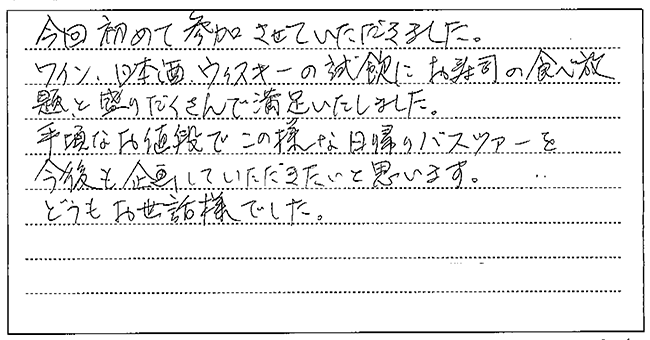 今回初めて参加させていただきました。
ワイン、日本酒、ウィスキーの試飲にお寿司の食べ放
題と盛りだくさんで満足いたしました。
手頃なお値段でこの様な日帰りバスツアーを
今後も企画していただきたいと思います。
どうもお世話様でした。